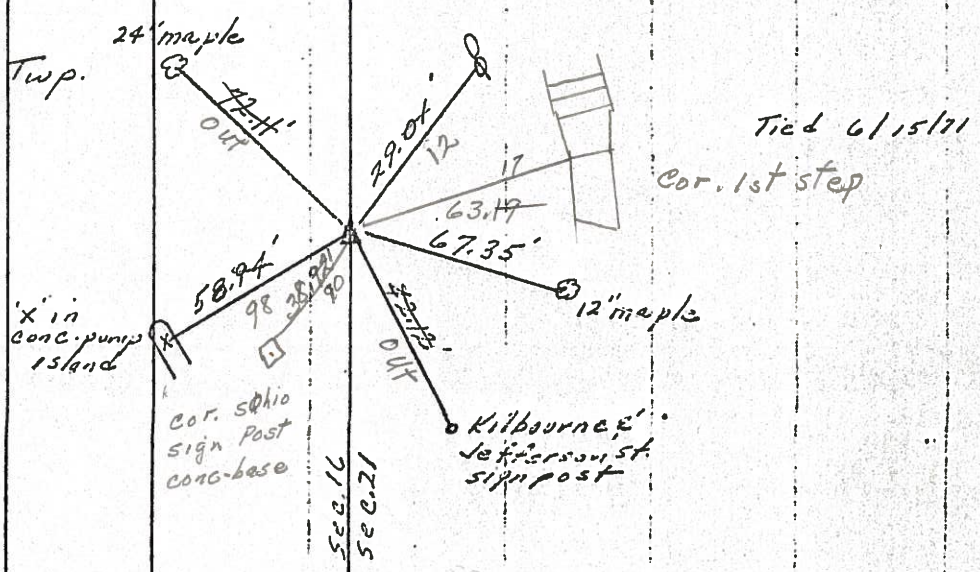 24" maple
Twp.
72.11'
OUT
29.01'
12
Tied 6/15/71
17
Cor. 1st step
63.19
67.35'
58.94'
98
90
12" maple
'X' in
conc. pump
Island
42.12'
OUT
Cor. Sohio
sign Post
conc-base
Kilbourne &
Jefferson St.
sign post
Sec.16
Sec.21